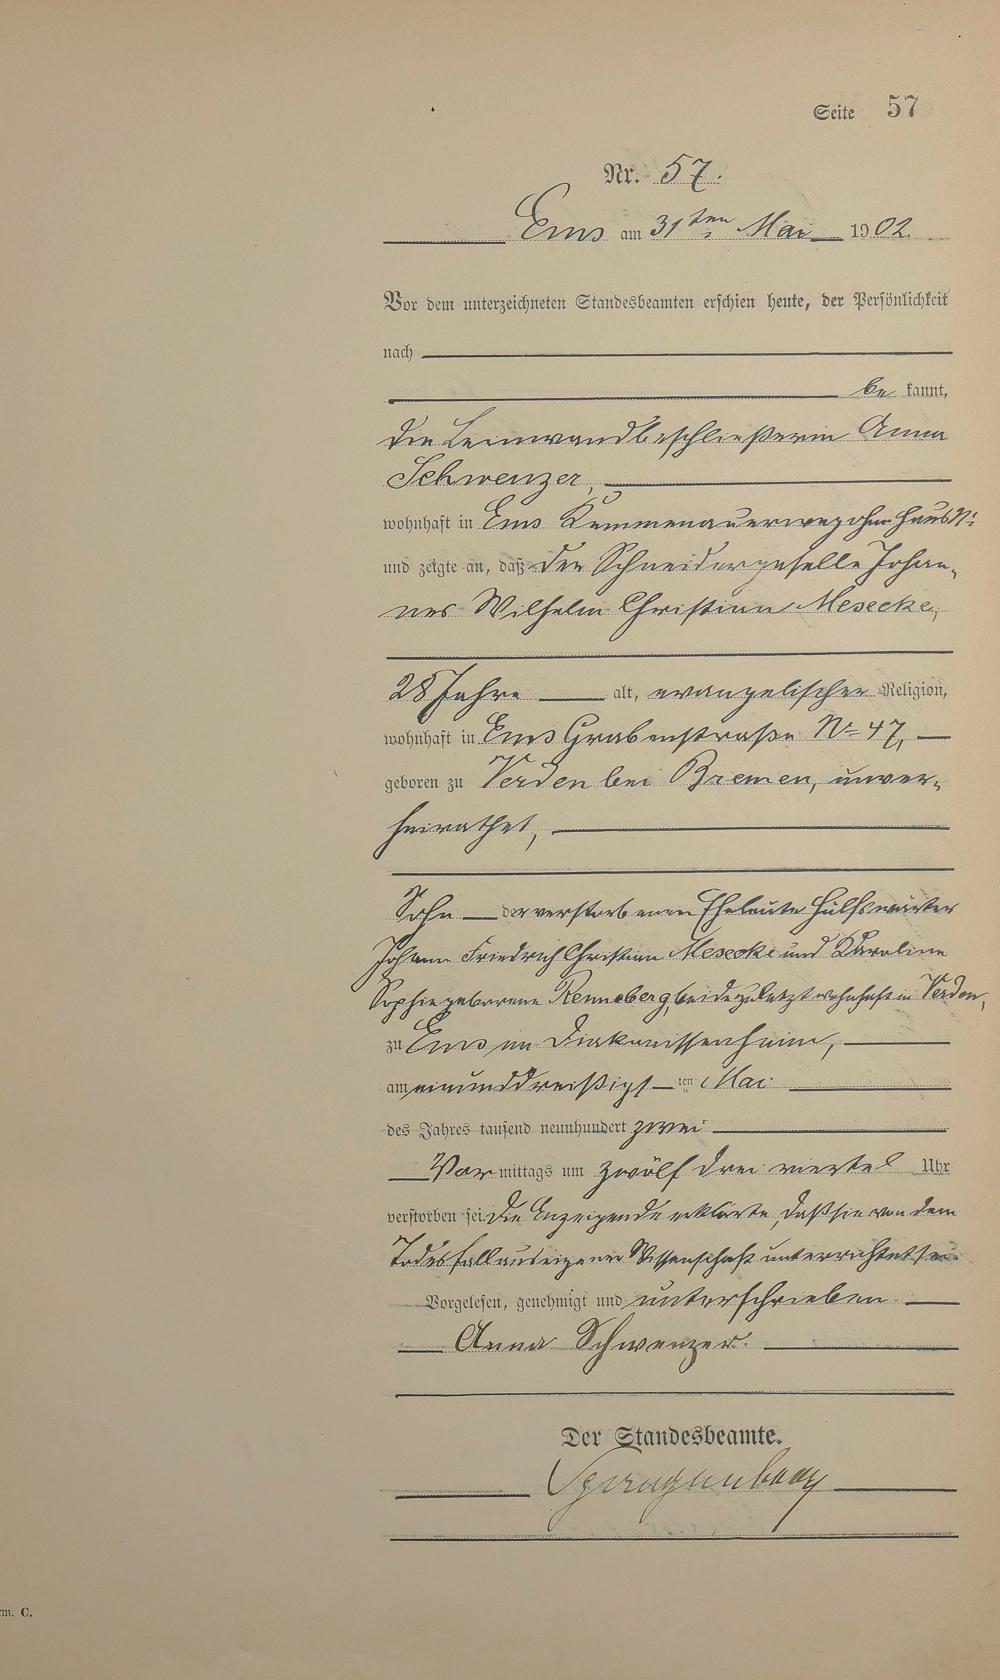 Seite 57
Nr. 57.
Ems am 31ten Mai 1902.
Vor dem unterzeichneten Standesbeamten erschien heute, der Persönlichkeit
nach
be kannt,
die Leinwandbeschließerin Anna
Schwenzer,
wohnhaft in Ems Kemmenauerweg ohne Haus N:
und zeigte an, daß der Schneidergeselle Johan-
nes Wilhelm Christian Mesecke,
28 Jahre alt, evangelischer Religion,
wohnhaft in Ems Grabenstraße No 47,
geboren zu Verden bei Bremen, unver-
heirathet,
Sohn der verstorbenen Eheleute Hülfswärter
Johann Friedrich Christian Mesecke und Karoline
Sophie geborene Renneberg, beide zuletzt wohnhaft in Verden,
zu Ems im Diakonissenheim,
am einunddreißigst ten Mai
des Jahres tausend neunhundert zwei
Vor mittags um zwölf drei viertel Uhr
verstorben sei. Die Anzeigende erklärte, daß sie von dem
Todesfall aus eigener Wissenschaft unterrichtet sei.
Vorgelesen, genehmigt und unterschrieben.
Anna Schwenzer.
Der Standesbeamte.
C.